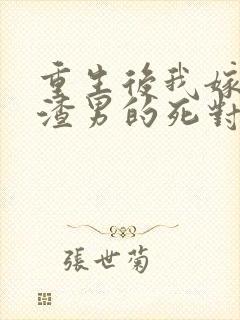 重生後我嫁
渣男的死對
張世菊